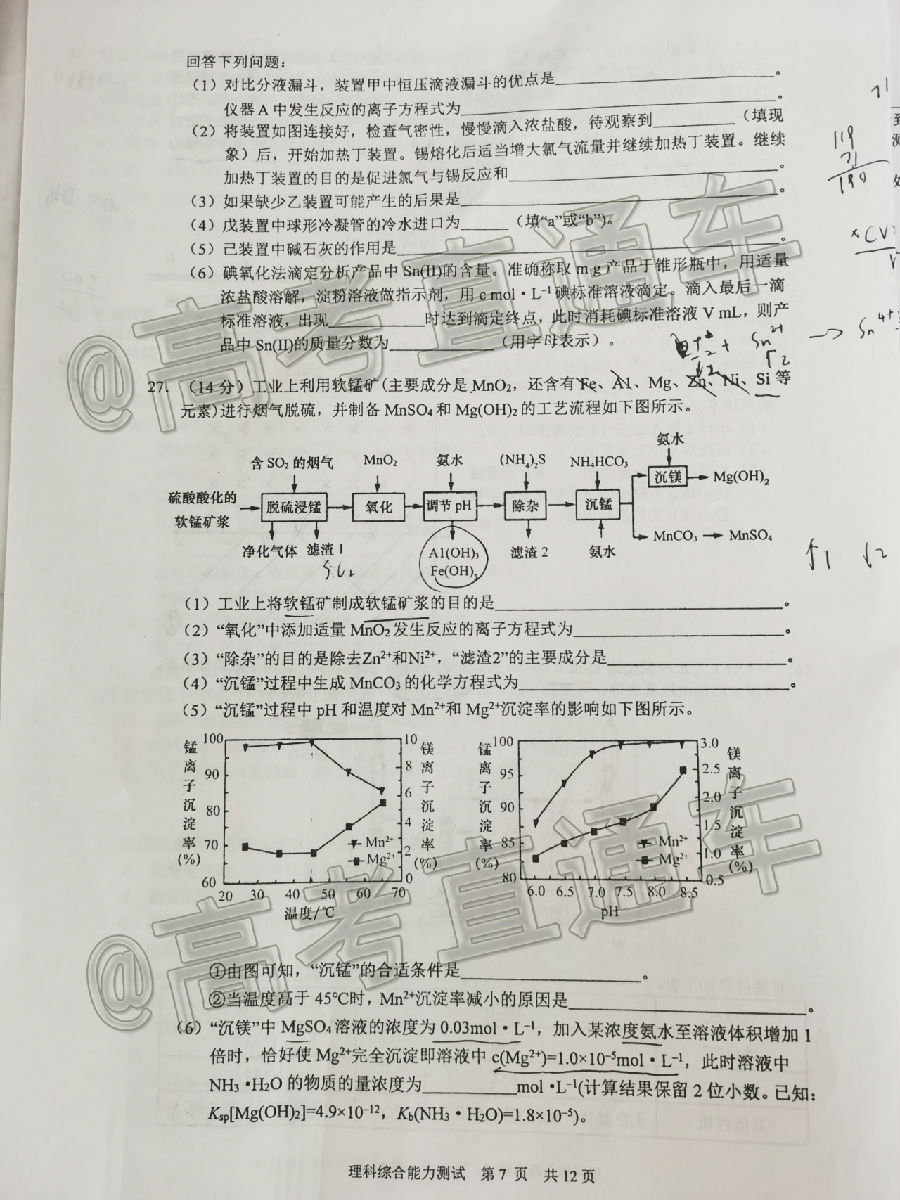 回答下列问题：
（1）对比分液漏斗，装置甲中恒压滴液漏斗的优点是____________。
仪器A中发生反应的离子方程式为____________。
（2）将装置如图连接好，检查气密性，慢慢滴入浓盐酸，待观察到____________（填现
象）后，开始加热丁装置。锡熔化后适当增大氯气流量并继续加热丁装置。继续
加热丁装置的目的是促进氯气与锡反应和____________。
（3）如果缺少乙装置可能产生的后果是____________。
（4）戊装置中球形冷凝管的冷水进口为______（填“a”或“b”）。
（5）己装置中碱石灰的作用是____________。
（6）碘氧化法滴定分析产品中Sn(II)的含量。准确称取m g产品于锥形瓶中，用适量
浓盐酸溶解，淀粉溶液做指示剂，用c mol·L⁻¹碘标准溶液滴定。滴入最后一滴
标准溶液，出现____________时达到滴定终点，此时消耗碘标准溶液V mL，则产
品中Sn(II)的质量分数为____________（用字母表示）。
27.（14分）工业上利用软锰矿(主要成分是MnO₂，还含有Fe、Al、Mg、Zn、Ni、Si等
元素)进行烟气脱硫，并制备MnSO₄和Mg(OH)₂的工艺流程如下图所示。
氨水
含SO₂的烟气 MnO₂ 氨水 (NH₄)₂S NH₄HCO₃ 沉镁 Mg(OH)₂
硫酸酸化的
软锰矿浆 脱硫浸锰 氧化 调节pH 除杂 沉锰
MnCO₃ MnSO₄
净化气体 滤渣1 Al(OH)₃ 滤渣2 氨水
Fe(OH)₃
（1）工业上将软锰矿制成软锰矿浆的目的是____________。
（2）“氧化”中添加适量MnO₂发生反应的离子方程式为____________。
（3）“除杂”的目的是除去Zn²⁺和Ni²⁺，“滤渣2”的主要成分是____________。
（4）“沉锰”过程中生成MnCO₃的化学方程式为____________。
（5）“沉锰”过程中pH和温度对Mn²⁺和Mg²⁺沉淀率的影响如下图所示。
锰离子沉淀率(%)
100
90
80
70
60
10
8
6
4
2
0
镁离子沉淀率(%)
Mn²⁺
Mg²⁺
20 30 40 50 60 70
温度/℃
锰离子沉淀率(%)
100
95
90
85
80
3.0
2.5
2.0
1.5
1.0
0.5
镁离子沉淀率(%)
Mn²⁺
Mg²⁺
6.0 6.5 7.0 7.5 8.0 8.5
pH
①由图可知，“沉锰”的合适条件是____________。
②当温度高于45℃时，Mn²⁺沉淀率减小的原因是____________
（6）“沉镁”中MgSO₄溶液的浓度为0.03mol·L⁻¹，加入某浓度氨水至溶液体积增加1
倍时，恰好使Mg²⁺完全沉淀即溶液中c(Mg²⁺)=1.0×10⁻⁵mol·L⁻¹，此时溶液中
NH₃·H₂O的物质的量浓度为________mol·L⁻¹(计算结果保留2位小数。已知：
Ksp[Mg(OH)₂]=4.9×10⁻¹²，Kb(NH₃·H₂O)=1.8×10⁻⁵)。
理科综合能力测试 第7页 共12页
@高考直通车
@高考直通车
119
71
190
Sn²⁺
Sn⁴⁺